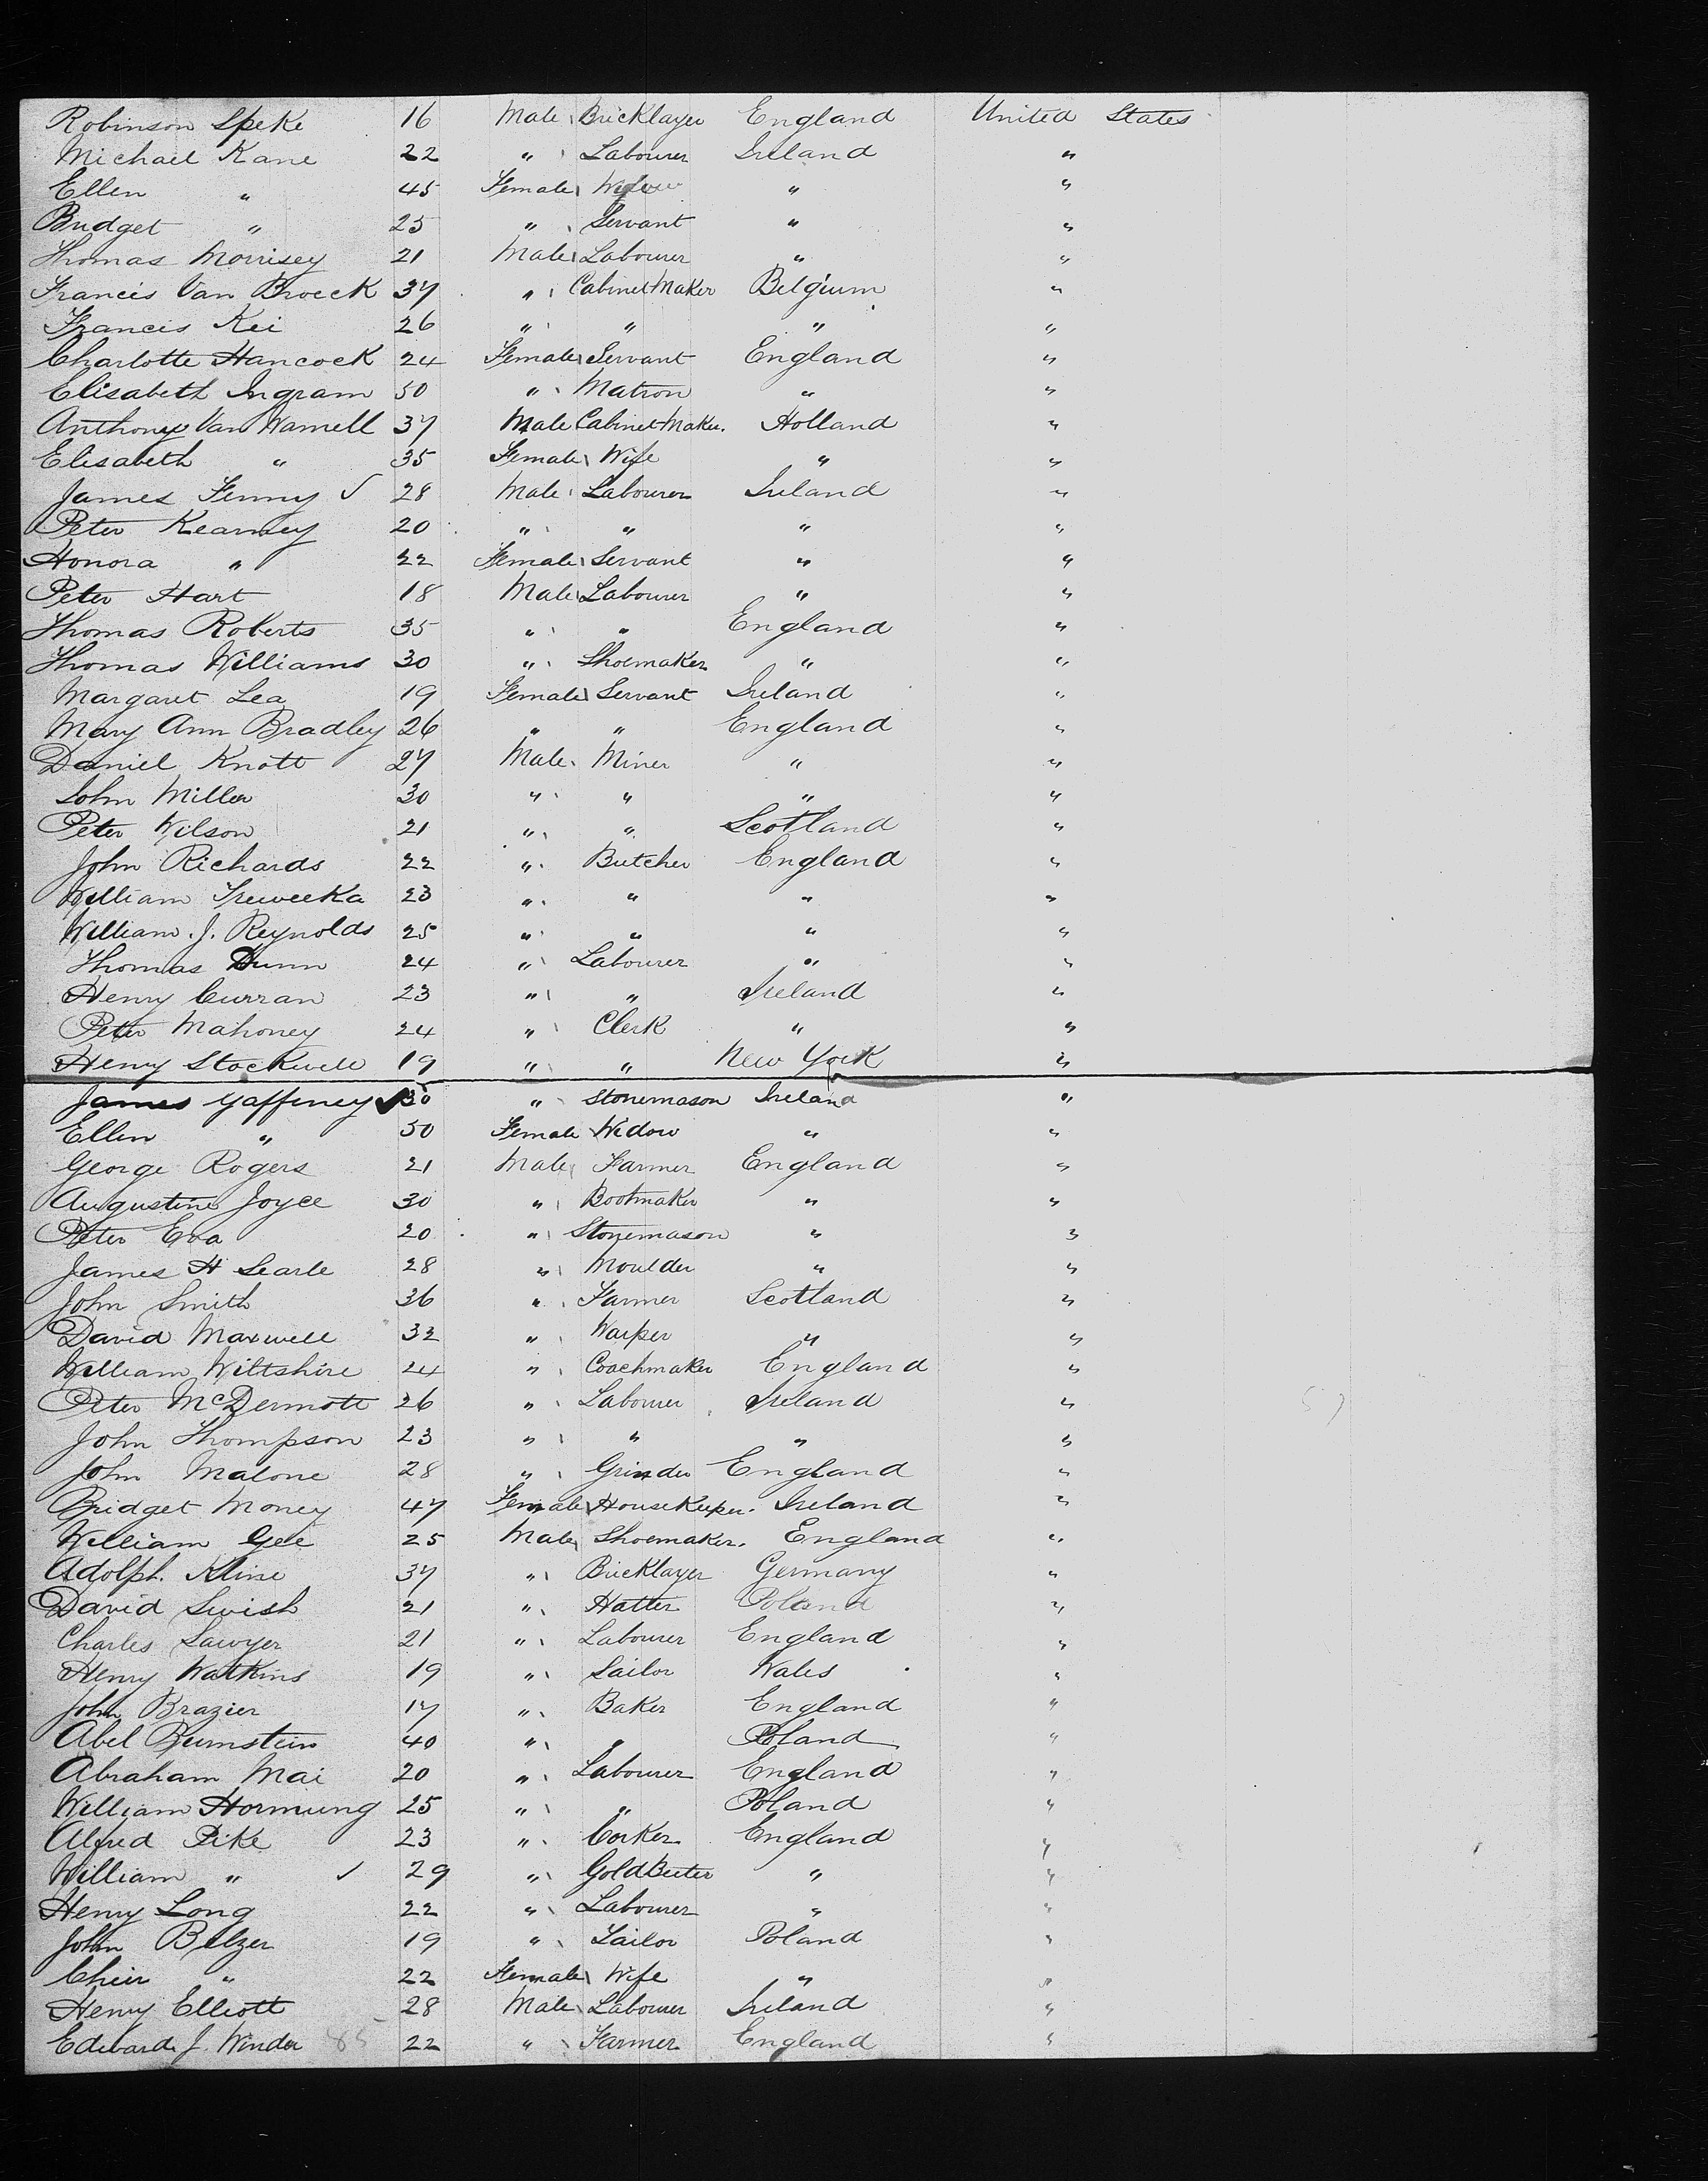 Robinson Speke 16 Male Bricklayer England United States
Michael Kane 22 " Labourer Ireland "
Ellen " 45 Female Widow " "
Bridget " 25 " Servant " "
Thomas Morrisey 21 Male Labourer " "
Francis Van Broeck 37 " Cabinet Maker Belgium "
Francis Kei 26 " " " "
Charlotte Hancock 24 Female Servant England "
Elisabeth Ingram 50 " Matron " "
Anthony Van Wamell 37 Male Cabinet Maker. Holland "
Elisabeth " 35 Female Wife " "
James Fenny ✓ 28 Male Labourer Ireland "
Peter Kearney 20 " " " "
Honora " 22 Female Servant " "
Peter Hart 18 Male Labourer " "
Thomas Roberts 35 " " England "
Thomas Williams 30 " Shoemaker " "
Margaret Lea 19 Female Servant Ireland "
Mary Ann Bradley 26 " " England "
Daniel Knott 27 Male Miner " "
John Miller 30 " " " "
Peter Wilson 21 " " Scotland "
John Richards 22 " Butcher England "
William Treweeka 23 " " " "
William. J. Reynolds 25 " " " "
Thomas Dunn 24 " Labourer " "
Henry Curran 23 " " Ireland "
Peter Mahoney 24 " Clerk " "
Henry Stockwell 19 " " New York "
James Gaffeney ✓ 30 " Stonemason Ireland "
Ellen " 50 Female Widow " "
George Rogers 21 Male Farmer England "
Augustine Joyce 30 " Bootmaker " "
Peter Eva 20 " Stonemason " "
James H Searle 28 " Moulder " "
John Smith 36 " Farmer Scotland "
David Maxwell 32 " Warper " "
William Wiltshire 24 " Coachmaker England "
Peter McDermott 26 " Labourer Ireland "
John Thompson 23 " " " "
John Malone 28 " Grinder England "
Bridget Money 47 Female HouseKeeper. Ireland "
William Gee 25 Male Shoemaker. England "
Adolph. Kline 37 " Bricklayer Germany "
David Swish 21 " Hatter Poland "
Charles Sawyer 21 " Labourer England "
Henry Watkins 19 " Sailor Wales "
John Brazier 17 " Baker England "
Abel Burnstein 40 " " Poland "
Abraham Mai 20 " Labourer England "
William Hormung 25 " " Poland "
Alfred Pike 23 " Corker England "
William " ✓ 29 " GoldBeeter " "
Henry Long 22 " Labourer " "
John Belzer 19 " Tailor Poland "
Cheir " 22 Female Wife " "
Henry Elliott 28 Male Labourer Ireland "
Edward J. Winder 85 22 " Farmer England "